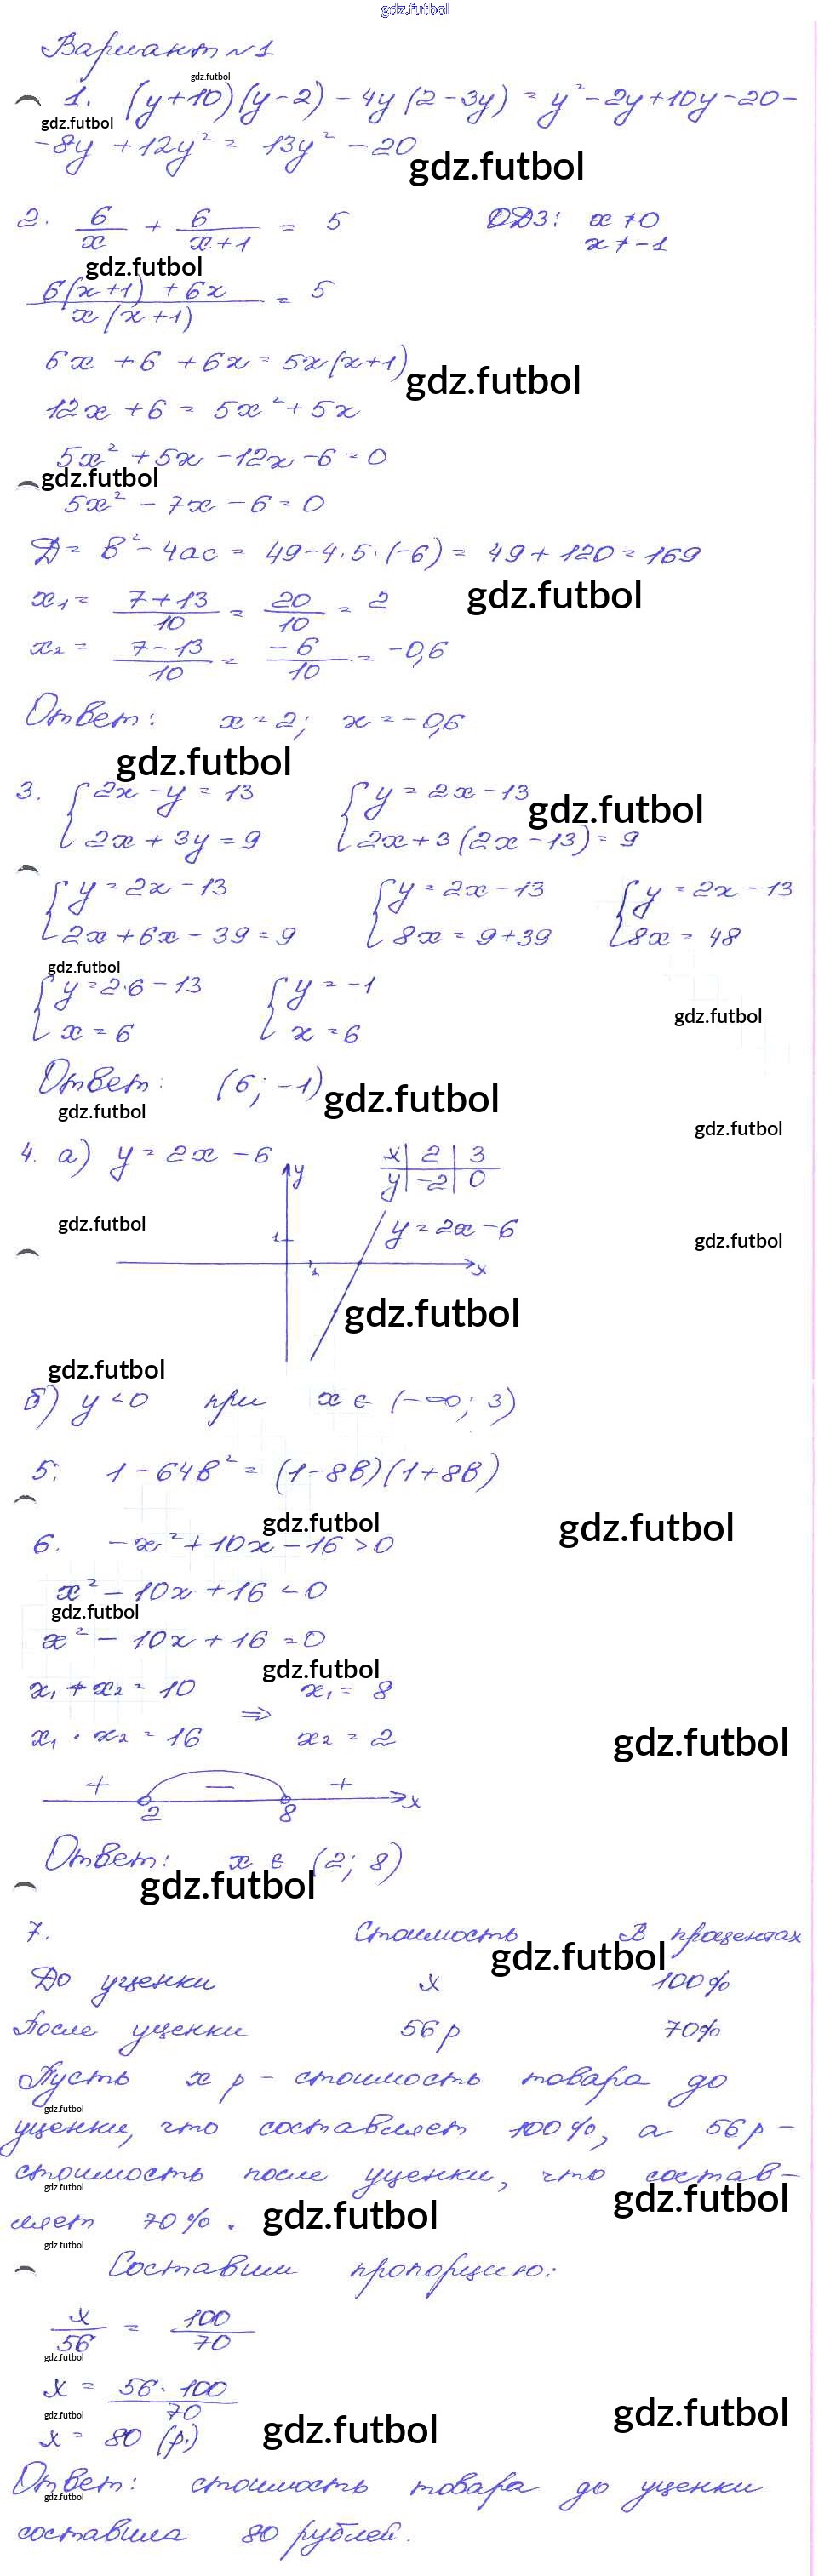 gdz.futbol
Вариант №1
gdz.futbol
1. (y+10)(y-2) - 4y(2-3y) = y² - 2y + 10y - 20 -
gdz.futbol
- 8y + 12y² = 13y² - 20
gdz.futbol
2. 6/x + 6/(x+1) = 5 ОДЗ: x ≠ 0
x ≠ -1
gdz.futbol
(6(x+1) + 6x)/(x(x+1)) = 5
6x + 6 + 6x = 5x(x+1)
gdz.futbol
12x + 6 = 5x² + 5x
5x² + 5x - 12x - 6 = 0
gdz.futbol
5x² - 7x - 6 = 0
Д = в² - 4ас = 49 - 4·5·(-6) = 49 + 120 = 169
x₁ = (7+13)/10 = 20/10 = 2
gdz.futbol
x₂ = (7-13)/10 = -6/10 = -0,6
Ответ: x = 2; x = -0,6
gdz.futbol
3. { 2x - y = 13 { y = 2x - 13
gdz.futbol
2x + 3y = 9 2x + 3(2x - 13) = 9
{ y = 2x - 13 { y = 2x - 13 { y = 2x - 13
2x + 6x - 39 = 9 8x = 9 + 39 8x = 48
gdz.futbol
{ y = 2·6 - 13 { y = -1
x = 6 x = 6
gdz.futbol
Ответ: (6; -1)
gdz.futbol
gdz.futbol
gdz.futbol
4. а) y = 2x - 6 x | 2 | 3
y y | -2 | 0
gdz.futbol
y = 2x - 6
gdz.futbol
1
1 x
gdz.futbol
gdz.futbol
б) y < 0 при x ∈ (-∞; 3)
5. 1 - 64в² = (1 - 8в)(1 + 8в)
gdz.futbol gdz.futbol
6. -x² + 10x - 16 > 0
x² - 10x + 16 < 0
gdz.futbol
x² - 10x + 16 = 0
gdz.futbol
x₁ + x₂ = 10 x₁ = 8
⇒
x₁ · x₂ = 16 x₂ = 2
gdz.futbol
+ − +
2 8 x
Ответ: x ∈ (2; 8)
gdz.futbol
7. Стоимость В процентах
gdz.futbol
До уценки x 100%
После уценки 56 р 70%
Пусть x р - стоимость товара до
gdz.futbol
уценки, что составляет 100%, а 56 р -
стоимость после уценки, что состав-
gdz.futbol
gdz.futbol
ляет 70%.
gdz.futbol
gdz.futbol
Составим пропорцию:
x/56 = 100/70
gdz.futbol
x = 56·100/70
gdz.futbol
gdz.futbol
x = 80 (р.)
gdz.futbol
Ответ: стоимость товара до уценки
gdz.futbol
составила 80 рублей.